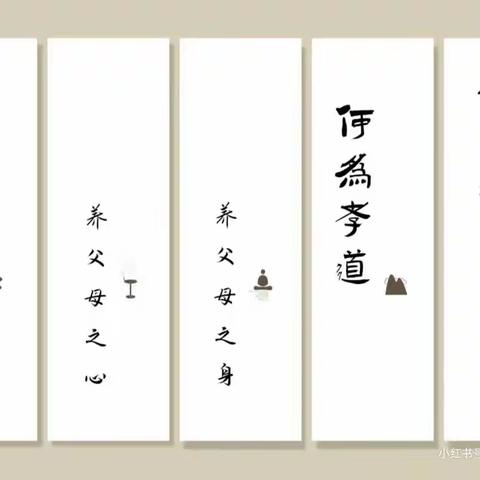 何為孝道
养父母之身
养父母之心
小红书